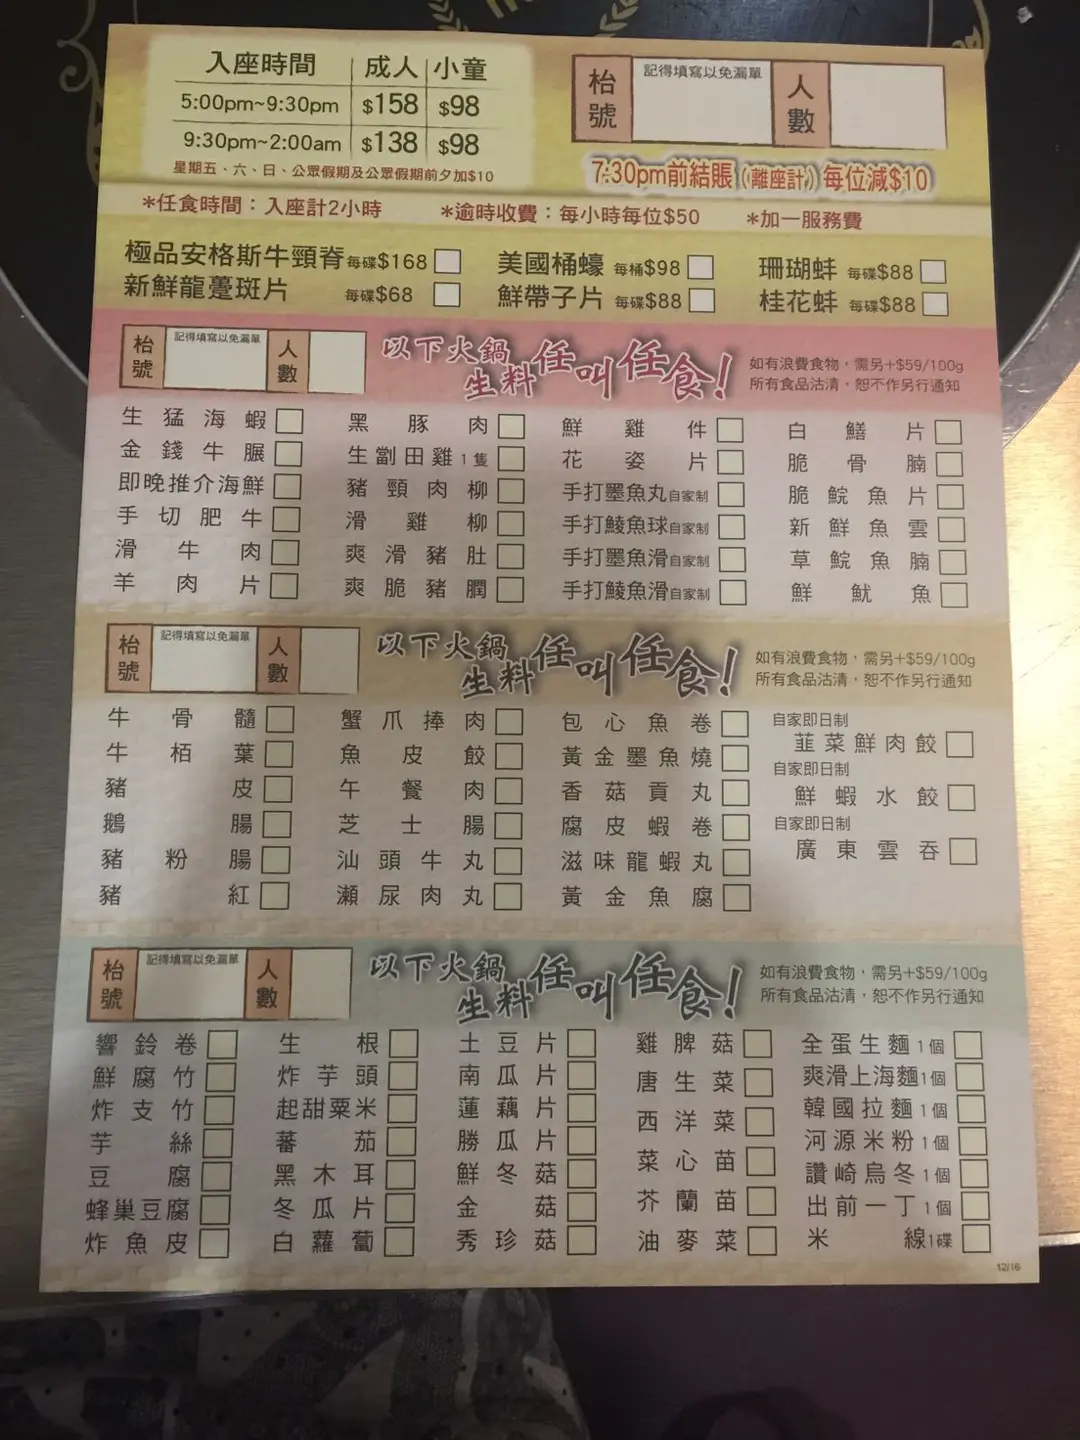 入座時間 成人 小童
5:00pm~9:30pm $158 $98
9:30pm~2:00am $138 $98
星期五、六、日、公眾假期及公眾假期前夕加$10
枱號 記得填寫以免漏單 人數
7:30pm前結賬(離座計) 每位減$10
*任食時間：入座計2小時 *逾時收費：每小時每位$50 *加一服務費
極品安格斯牛頸脊 每碟$168 美國桶蠔 每桶$98 珊瑚蚌 每碟$88
新鮮龍躉斑片 每碟$68 鮮帶子片 每碟$88 桂花蚌 每碟$88
枱號 記得填寫以免漏單 人數
以下火鍋生料任叫任食！
如有浪費食物，需另+$59/100g
所有食品沽清，恕不作另行通知
生猛海蝦 黑豚肉 鮮雞件 白鱔片
金錢牛𦟌 生劏田雞1隻 花姿片 脆骨腩
即晚推介海鮮 豬頸肉柳 手打墨魚丸自家制 脆鯇魚片
手切肥牛 滑雞柳 手打鯪魚球自家制 新鮮魚雲
滑牛肉 爽滑豬肚 手打墨魚滑自家制 草鯇魚腩
羊肉片 爽脆豬膶 手打鯪魚滑自家制 鮮魷魚
枱號 記得填寫以免漏單 人數
以下火鍋生料任叫任食！
如有浪費食物，需另+$59/100g
所有食品沽清，恕不作另行通知
牛骨髓 蟹爪捧肉 包心魚卷 自家即日制 韮菜鮮肉餃
牛栢葉 魚皮餃 黃金墨魚燒 自家即日制 鮮蝦水餃
豬皮 午餐肉 香菇貢丸 自家即日制 廣東雲吞
鵝腸 芝士腸 腐皮蝦卷
豬粉腸 汕頭牛丸 滋味龍蝦丸
豬紅 瀨尿肉丸 黃金魚腐
枱號 記得填寫以免漏單 人數
以下火鍋生料任叫任食！
如有浪費食物，需另+$59/100g
所有食品沽清，恕不作另行通知
響鈴卷 生根 土豆片 雞脾菇 全蛋生麵1個
鮮腐竹 炸芋頭 南瓜片 唐生菜 爽滑上海麵1個
炸支竹 起甜粟米 蓮藕片 西洋菜 韓國拉麵1個
芋絲 蕃茄 勝瓜片 菜心苗 河源米粉1個
豆腐 黑木耳 鮮冬菇 芥蘭苗 讚崎烏冬1個
蜂巢豆腐 冬瓜片 金菇 油麥菜 出前一丁1個
炸魚皮 白蘿蔔 秀珍菇 米線1碟
12/16